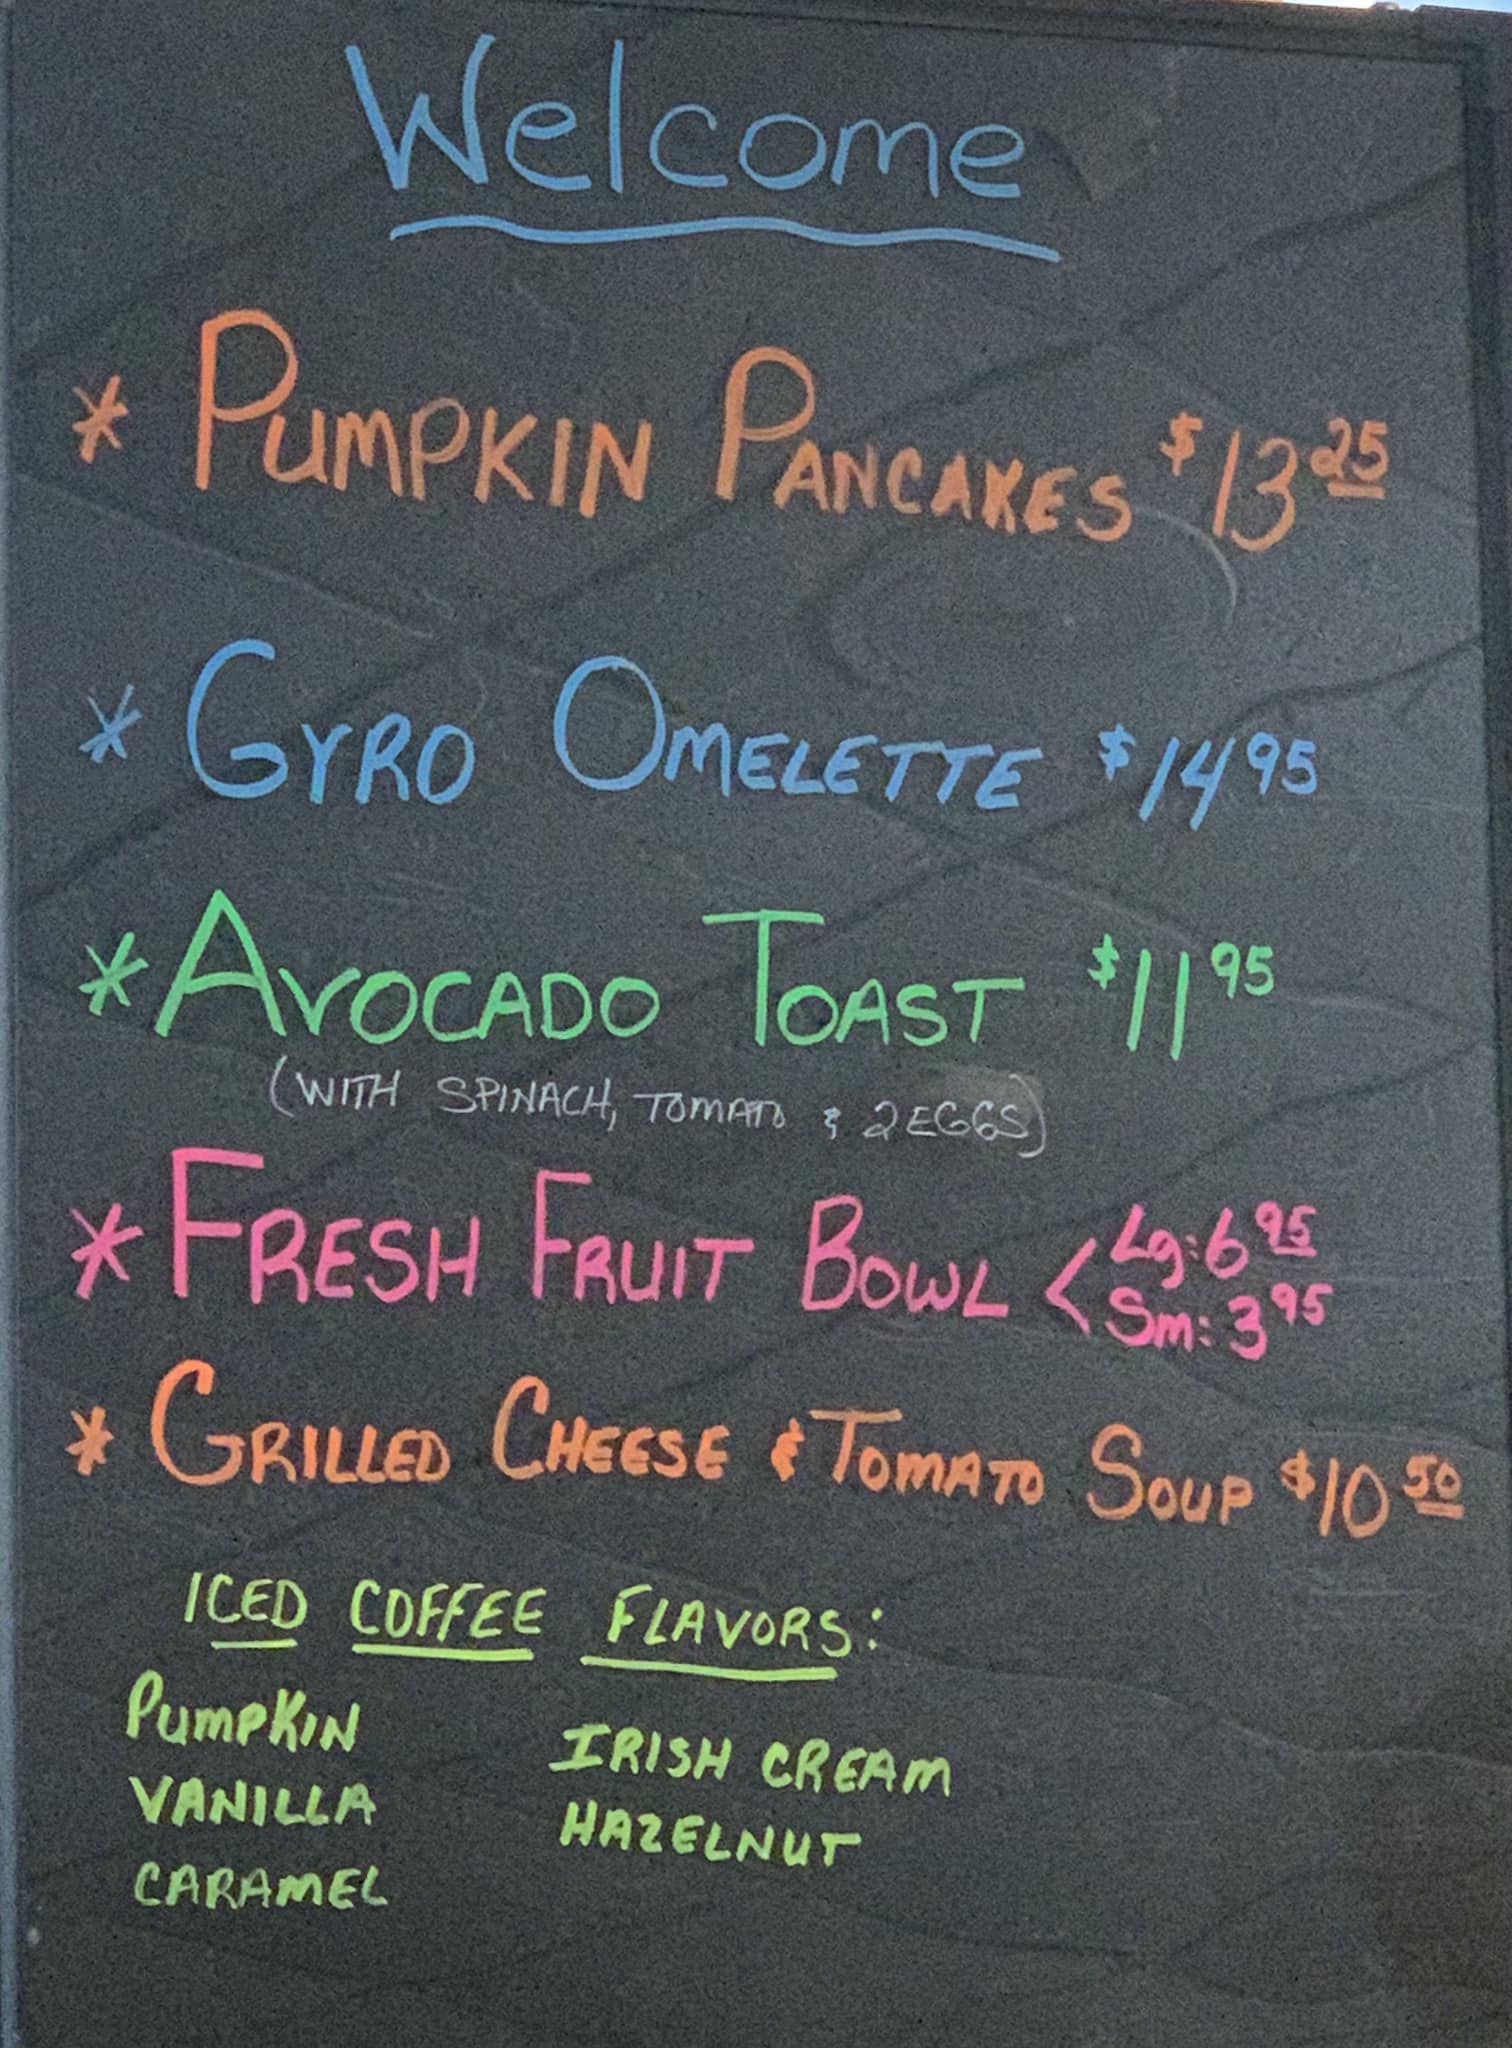 Welcome
* PUMPKIN PANCAKES $13 25
* GYRO OMELETTE $14 95
* AVOCADO TOAST $11 95
(WITH SPINACH, TOMATO & 2 EGGS)
* FRESH FRUIT BOWL < Lg: 6 95
Sm: 3 95
* GRILLED CHEESE & TOMATO SOUP $10 50
ICED COFFEE FLAVORS:
PUMPKIN
VANILLA
CARAMEL
IRISH CREAM
HAZELNUT